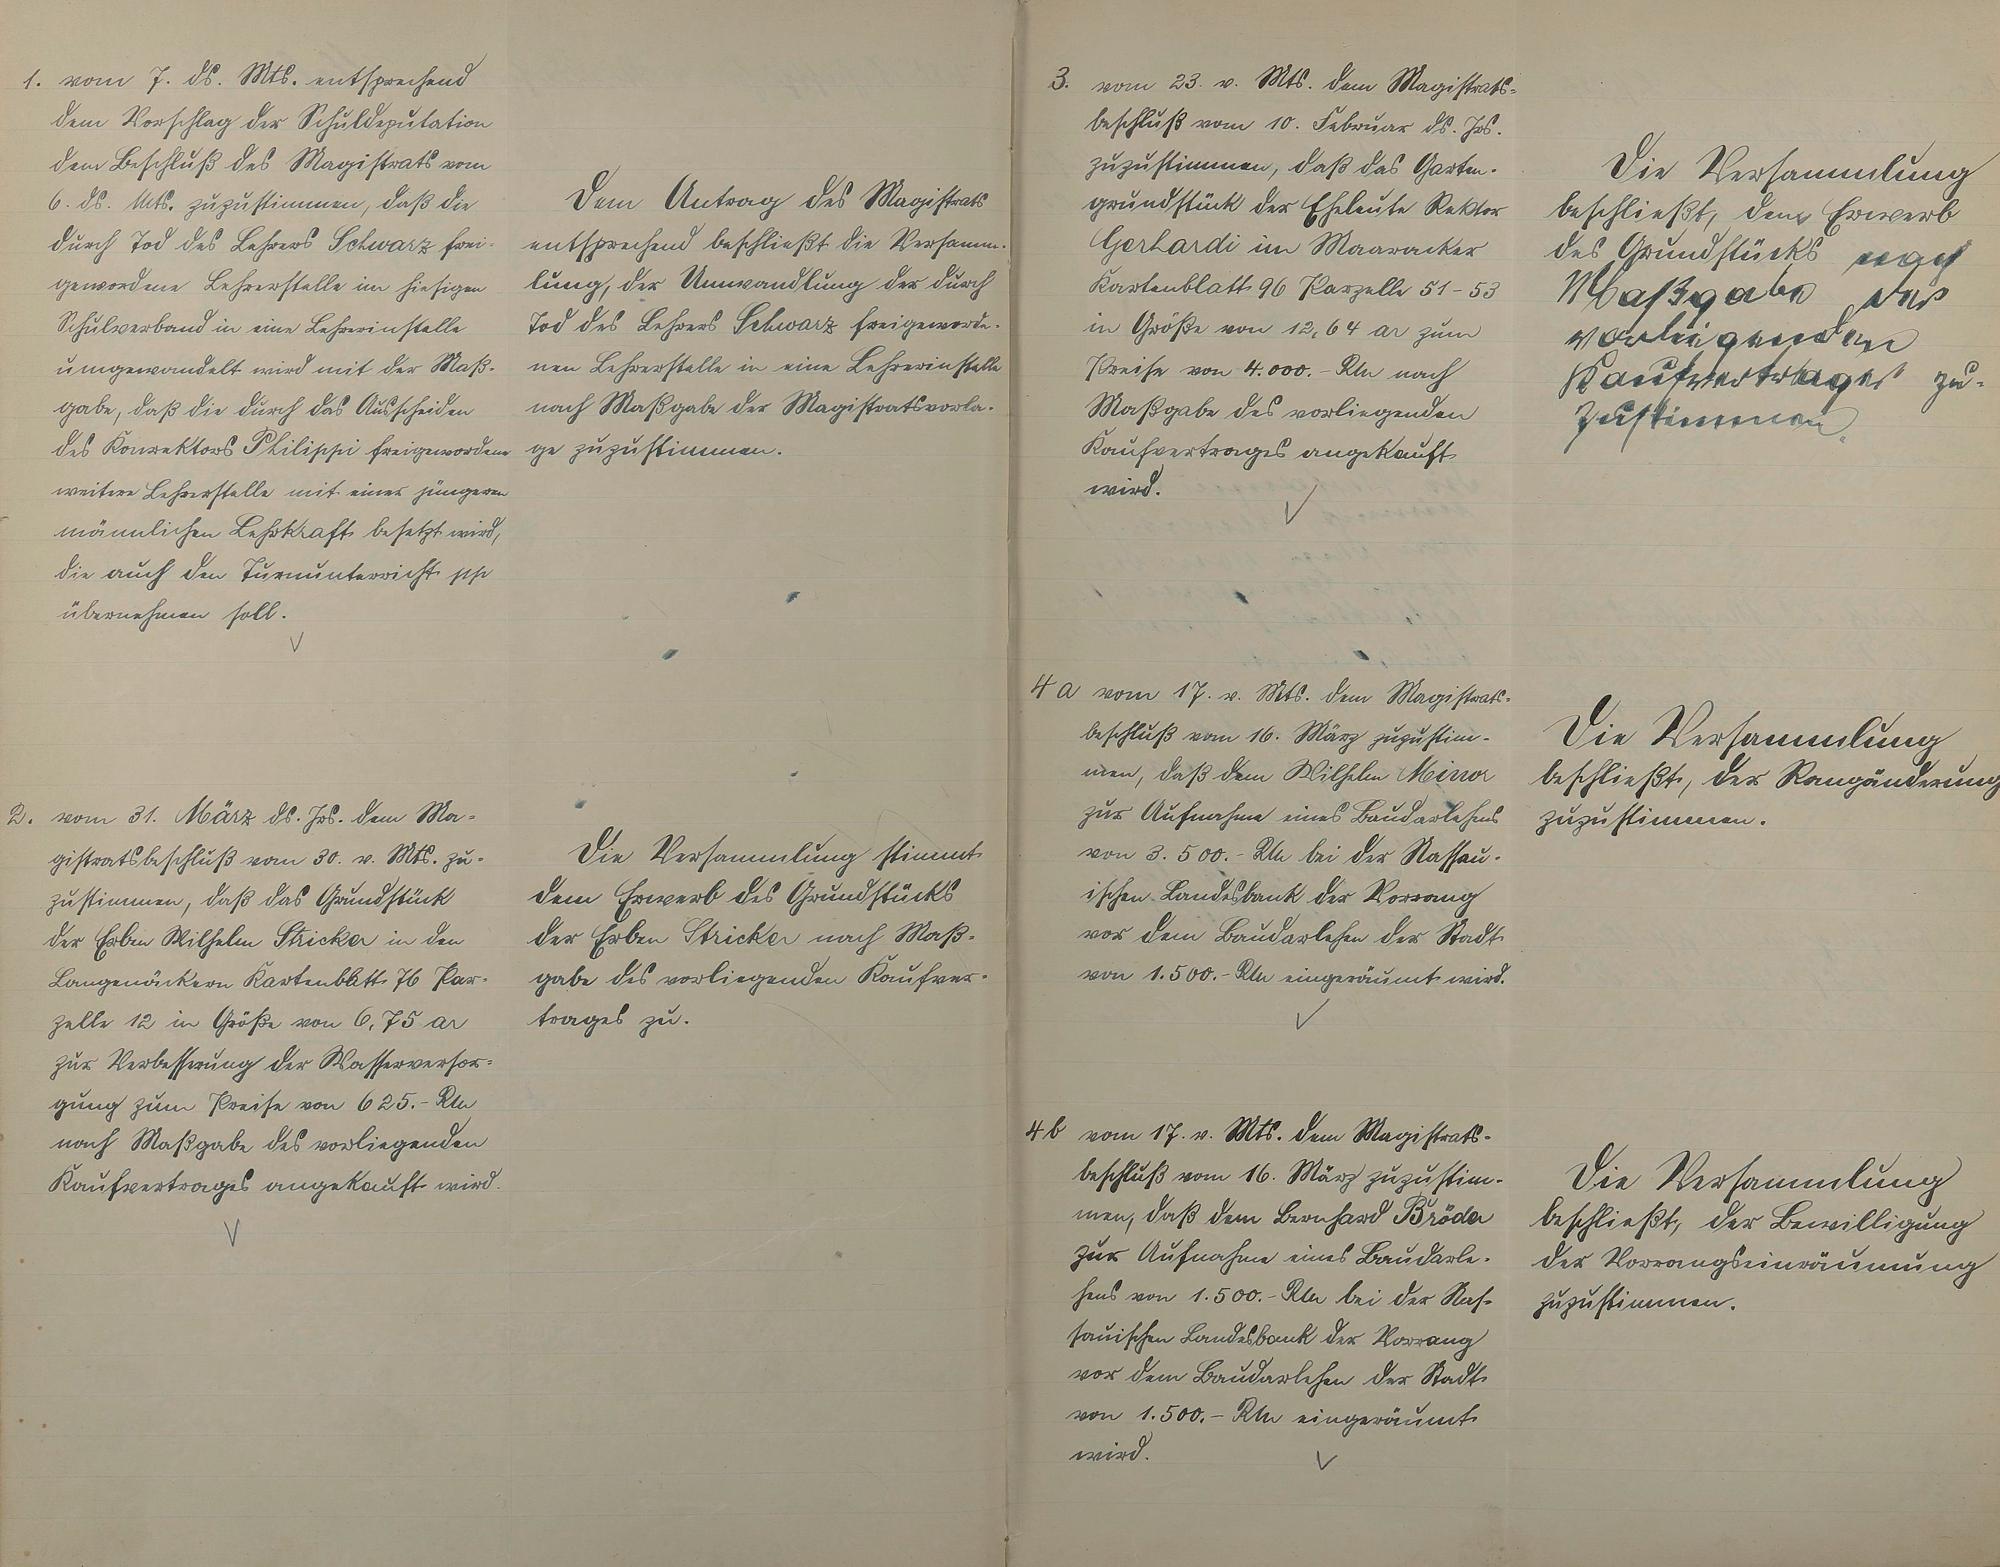 1. vom 7. ds. Mts. entsprechend
dem Vorschlag der Schuldeputation
dem Beschluß des Magistrats vom
6. ds. Mts. zuzustimmen, daß die
durch Tod des Lehrers Schwarz frei-
gewordene Lehrerstelle im hiesigen
Schulverband in eine Lehrerinstelle
umgewandelt wird mit der Maß-
gabe, daß die durch das Ausscheiden
des Konrektors Philippi freigewordene
weitere Lehrerstelle mit einer jüngeren
männlichen Lehrkraft besetzt wird,
die auch den Turnunterricht pp
übernehmen soll.
Dem Antrag des Magistrats
entsprechend beschließt die Versamm-
lung, der Umwandlung der durch
Tod des Lehrers Schwarz freigeworde-
nen Lehrerstelle in eine Lehrerinstelle
nach Maßgabe der Magistratsvorla-
ge zuzustimmen.
2. vom 31. März ds. Jrs. dem Ma-
gistratsbeschluß vom 30. v. Mts. zu-
zustimmen, daß das Grundstück
der Erben Wilhelm Stricker in den
Langenäckern Kartenblatt 76 Par-
zelle 12 in Größe von 6,75 ar
zur Verbesserung der Wasserversor-
gung zum Preise von 625.- RM
nach Maßgabe des vorliegenden
Kaufvertrages angekauft wird.
Die Versammlung stimmt
dem Erwerb des Grundstücks
der Erben Stricker nach Maß-
gabe des vorliegenden Kaufver-
trages zu.
3. vom 23. v. Mts. dem Magistrats-
beschluß vom 10. Februar ds. Jrs.
zuzustimmen, daß das Garten-
grundstück der Eheleute Rektor
Gerhardi im Maaracker
Kartenblatt 96 Parzelle 51-53
in Größe von 12,64 ar zum
Preise von 4.000.- RM nach
Maßgabe des vorliegenden
Kaufvertrages angekauft
wird.
Die Versammlung
beschließt, dem Erwerb
des Grundstücks nach
Maßgabe des
vorliegenden
Kaufvertrages zu-
zustimmen.
4a vom 17. v. Mts. dem Magistrats-
beschluß vom 16. März zuzustim-
men, daß dem Wilhelm Minor
zur Aufnahme eines Baudarlehens
von 3.500.- RM bei der Nassau-
ischen Landesbank der Vorrang
vor dem Baudarlehen der Stadt
von 1.500.- RM eingeräumt wird.
Die Versammlung
beschließt, der Rangänderung
zuzustimmen.
4b vom 17. v. Mts. dem Magistrats-
beschluß vom 16. März zuzustim-
men, daß dem Bernhard Bröder
zur Aufnahme eines Baudarle-
hens von 1.500.- RM bei der Nas-
sauischen Landesbank der Vorrang
vor dem Baudarlehen der Stadt
von 1.500.- RM eingeräumt
wird.
Die Versammlung
beschließt, der Bewilligung
der Vorrangseinräumung
zuzustimmen.